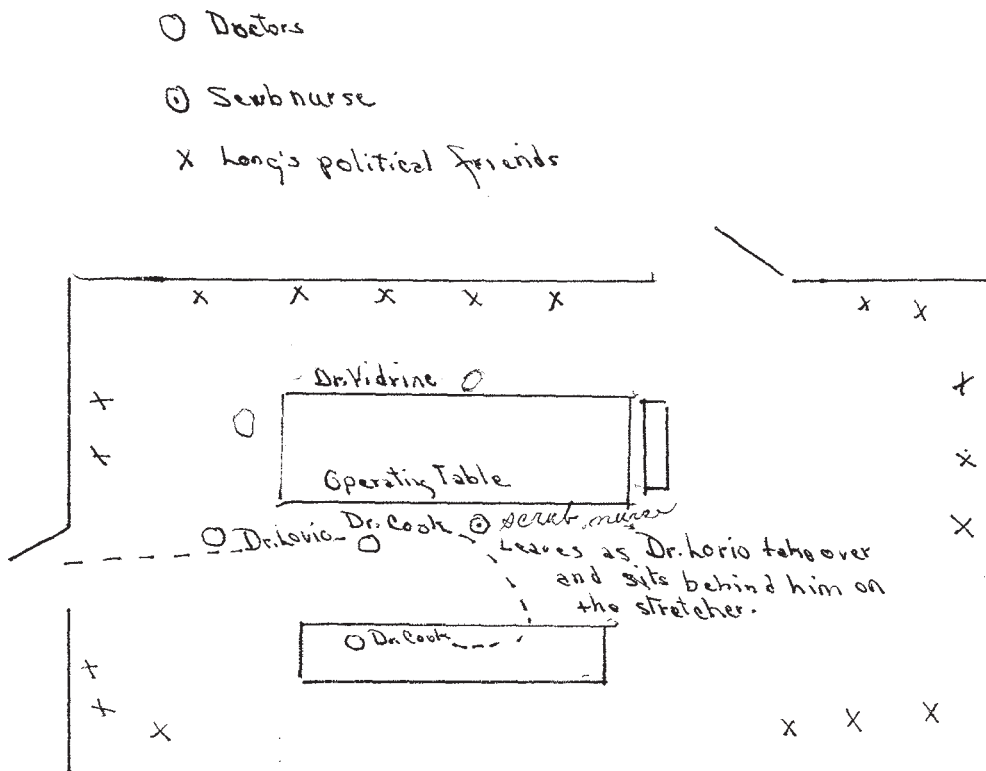 Doctors
Scrub nurse
X Long's political friends
Dr. Vidrine
Operating Table
Dr. Lorio Dr. Cook scrub nurse
Leaves as Dr. Lorio take over
and sits behind him on
the stretcher.
Dr. Cook